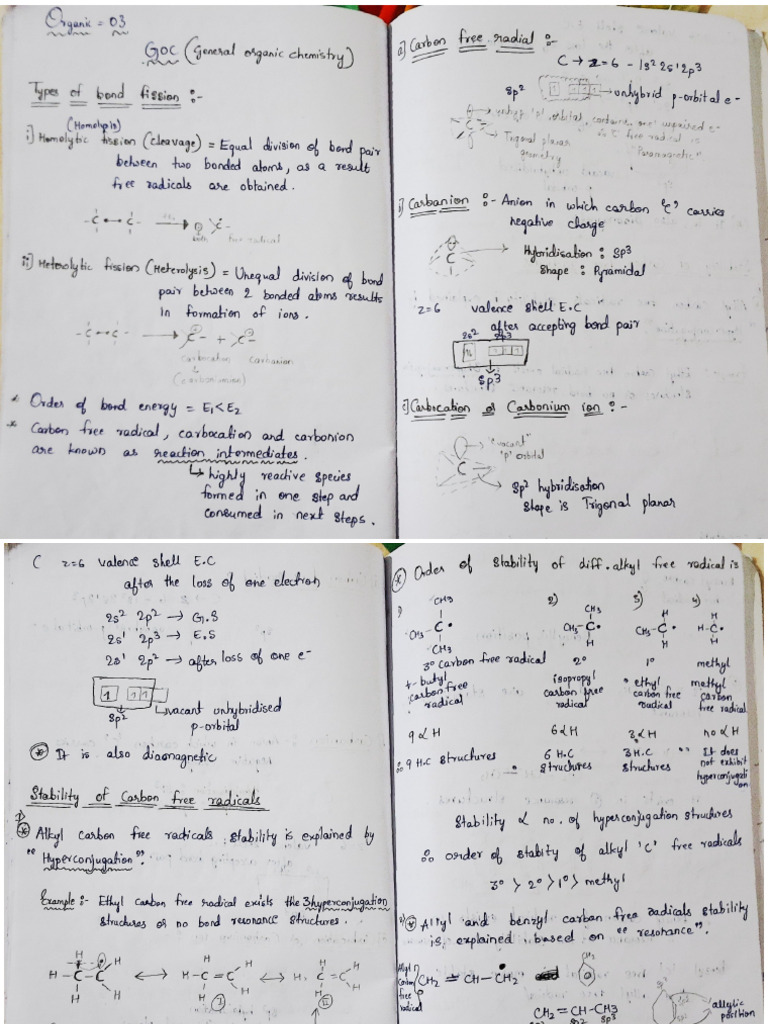 Organic = 03
GOC (General organic chemistry)
Types of bond fission :-
(Homolysis)
i) Homolytic fission (cleavage) = Equal division of bond pair
between two bonded atoms, as a result
free radicals are obtained.
-C •—• C-
free radical
ii) Heterolytic fission (Heterolysis) = Unequal division of bond
pair between 2 bonded atoms results
in formation of ions.
-C •—• C- → C⊕ + C⊖
carbocation carbanion
(carbonium)
* Order of bond energy = E₁<E₂
* Carbon free radical, carbocation and carbonion
are known as reaction intermediates.
↳ highly reactive species
formed in one step and
consumed in next steps.
a) Carbon free radial :-
C → z=6 - 1s² 2s¹ 2p³
sp² 1 → unhybrid p-orbital e-
Trigonal planar
geometry
"Paramagnetic"
b) Carbanion :- Anion in which carbon 'C' carries
negative charge
C → Hybridisation : sp³
Shape : Pyramidal
z=6 valence shell E.C
after accepting bond pair
2s² 2p³
1 1 1
sp³
c) Carbocation or Carbonium ion :-
"vacant"
'p' orbital
C
sp² hybridisation
slope is Trigonal planar
C z=6 valence shell E.C
after the loss of one electron
2s² 2p² → G.S
2s¹ 2p³ → E.S
2s¹ 2p² → after loss of one e-
1 1 1
sp² ↳ vacant unhybridised
p-orbital
* It is also diamagnetic
Stability of Carbon free radicals
1)
* Alkyl carbon free radicals stability is explained by
"Hyperconjugation".
Example :- Ethyl carbon free radical exists the 3 hyperconjugation
structures or no bond resonance structures.
H H H H H
H-C-C ↔ H-C=C ↔ H. C=C
H H H H H
I II
* Order of stability of diff. alkyl free radical is
1) CH₃ 2) CH₃ 3) H 4) H
CH₃-C• CH₃-C• CH₃-C• H-C•
CH₃ H H H
3° Carbon free radical 2° 1° methyl
t-butyl isopropyl ethyl methyl
carbon free carbon free carbon free carbon
radical radical radical free radical
9 αH 6αH 3αH no αH
∴ 9 H.C structures 6 H.C 3 H.C ∵ It does
structures structures not exhibit
hyperconjugati
on
Stability α no. of hyperconjugation structures
∴ order of stabity of alkyl 'C' free radicals
3° > 2° > 1° > methyl
2) * Allyl and benzyl carbon free radicals stability
is explained based on "resonance".
Allyl
Carbon
free
radical
CH₂ = CH-CH₂ CH₂
CH₂=CH-CH₃
sp² sp² sp³
→ allylic
position